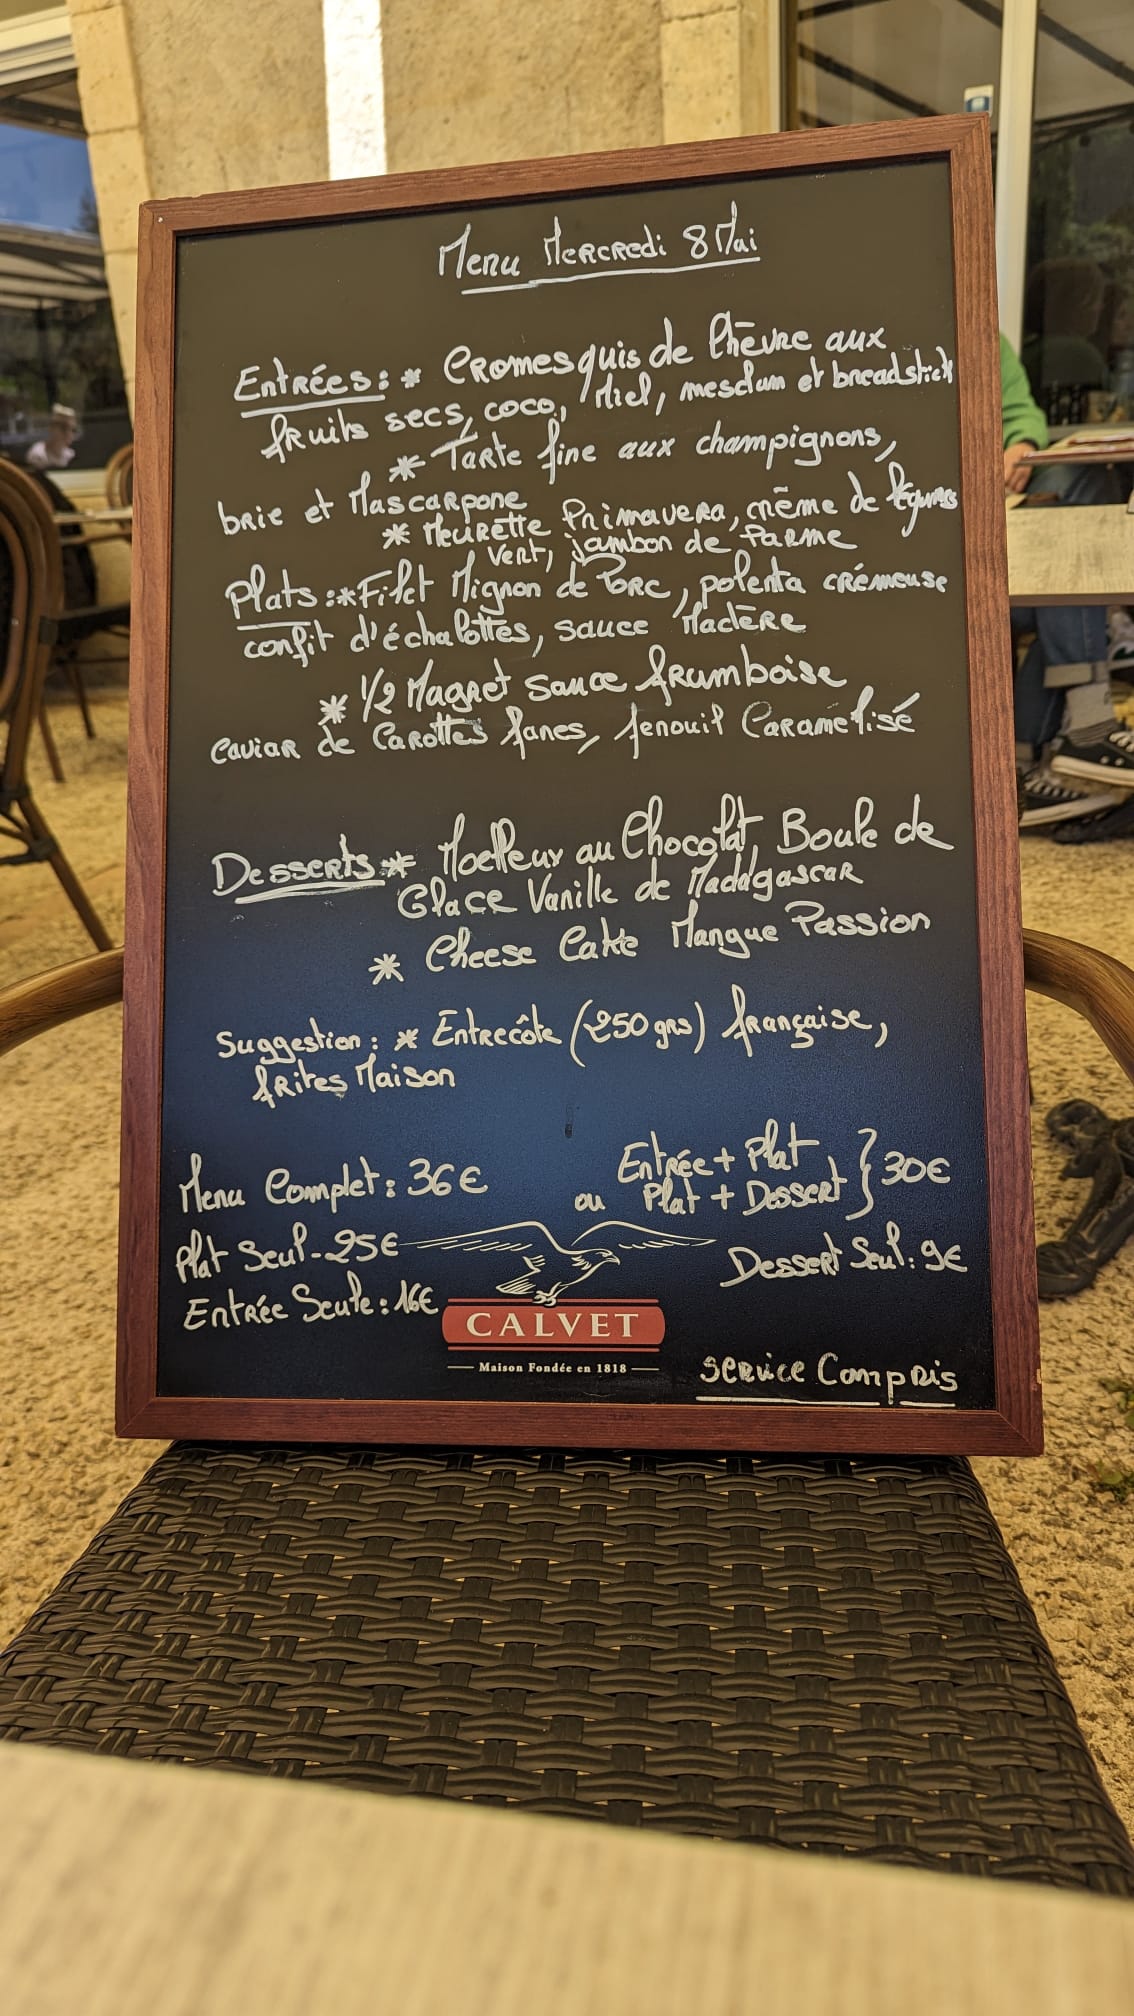 Menu Mercredi 8 Mai
Entrées : * Cromesquis de Chèvre aux
fruits secs, coco, Miel, mesclum et breadstick
* Tarte fine aux champignons,
brie et Mascarpone
* Meurette Primavera, crème de légumes
vert, jambon de Parme
Plats : * Filet Mignon de Porc, polenta crémeuse
confit d'échalottes, sauce Madère
* 1/2 Magret sauce framboise
Caviar de Carottes fanes, fenouil Caramélisé
Desserts * Moelleux au Chocolat, Boule de
Glace Vanille de Madagascar
* Cheese Cake Mangue Passion
Suggestion : * Entrecôte (250 grs) française,
frites Maison
Menu Complet : 36€
Entrée + Plat
ou Plat + Dessert } 30€
Plat Seul - 25€
Dessert Seul : 9€
Entrée Seule : 16€
CALVET
Maison Fondée en 1818
Service Compris